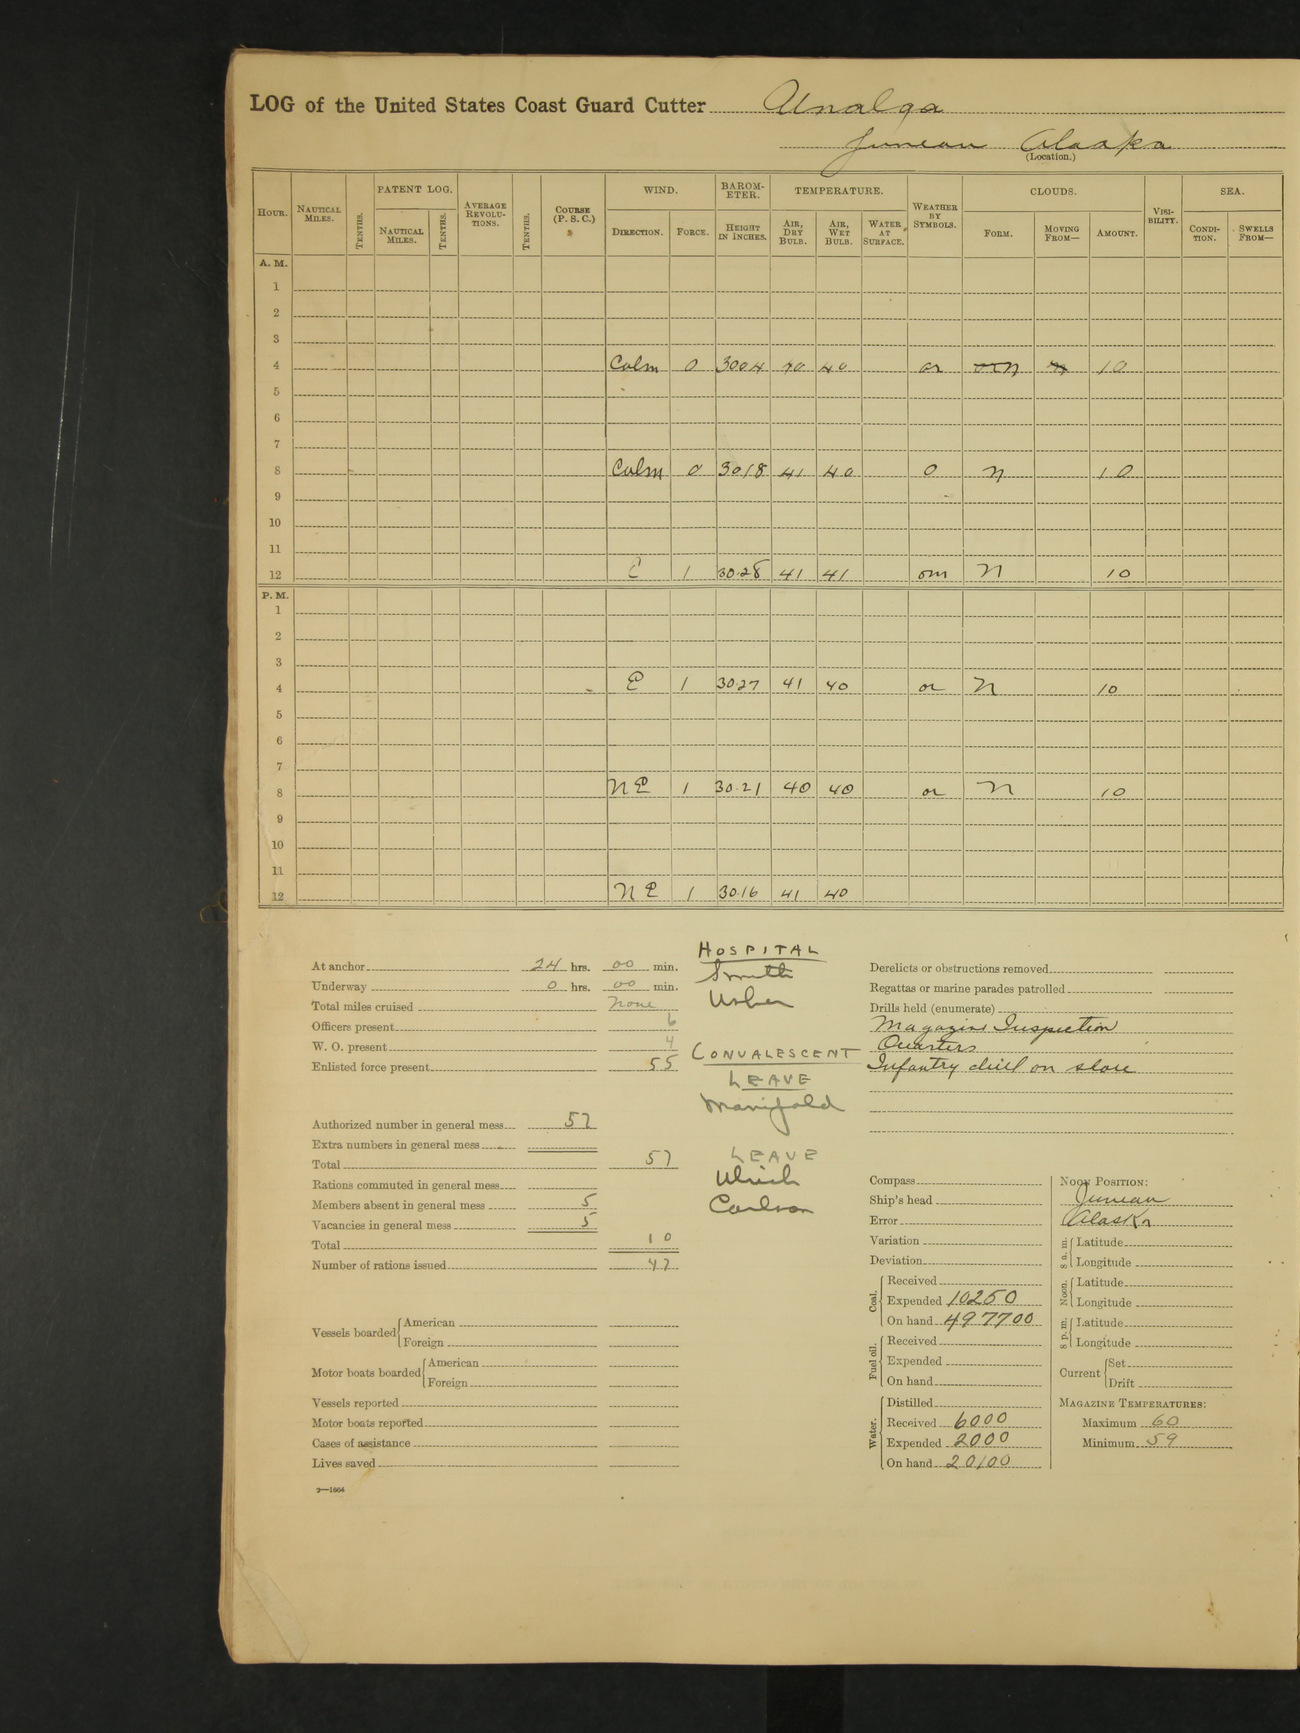 LOG of the United States Coast Guard Cutter Unalga
Juneau Alaska
(Location.)
HOUR. NAUTICAL MILES. TENTHS. PATENT LOG. NAUTICAL MILES. TENTHS. AVERAGE REVOLUTIONS. TENTHS. COURSE (P. S. C.) WIND. DIRECTION. FORCE. BAROMETER. HEIGHT IN INCHES. TEMPERATURE. AIR, DRY BULB. AIR, WET BULB. WATER AT SURFACE. WEATHER BY SYMBOLS. CLOUDS. FORM. MOVING FROM— AMOUNT. VISIBILITY. SEA. CONDITION. SWELLS FROM—
A. M.
1
2
3
4 Calm 0 30.04 40 40 or n 10
5
6
7
8 Calm 0 30.18 41 40 o n 10
9
10
11
12 E 1 30.28 41 41 om n 10
P. M.
1
2
3
4 E 1 30.27 41 40 or n 10
5
6
7
8 NE 1 30.21 40 40 or n 10
9
10
11
12 NE 1 30.16 41 40
At anchor 24 hrs. 00 min.
Underway 0 hrs. 00 min.
Total miles cruised none
Officers present 6
W. O. present 4
Enlisted force present 55
Authorized number in general mess 57
Extra numbers in general mess
Total 57
Rations commuted in general mess
Members absent in general mess 5
Vacancies in general mess 5
Total 10
Number of rations issued 47
Vessels boarded American
Foreign
Motor boats boarded American
Foreign
Vessels reported
Motor boats reported
Cases of assistance
Lives saved
2—1664
HOSPITAL
Smith
Usher
CONVALESCENT
LEAVE
Manifold
LEAVE
Ulrich
Carlson
Derelicts or obstructions removed
Regattas or marine parades patrolled
Drills held (enumerate)
Magazine Inspection
Quarters
Infantry drill on shore
Compass
Ship's head
Error
Variation
Deviation
Coal. Received
Expended 10250
On hand 497700
Fuel oil. Received
Expended
On hand
Water. Distilled
Received 6000
Expended 2000
On hand 20100
NOON POSITION:
Juneau
Alaska
8 a. m. Latitude
Longitude
Noon. Latitude
Longitude
8 p. m. Latitude
Longitude
Current Set
Drift
MAGAZINE TEMPERATURES:
Maximum 60
Minimum 59